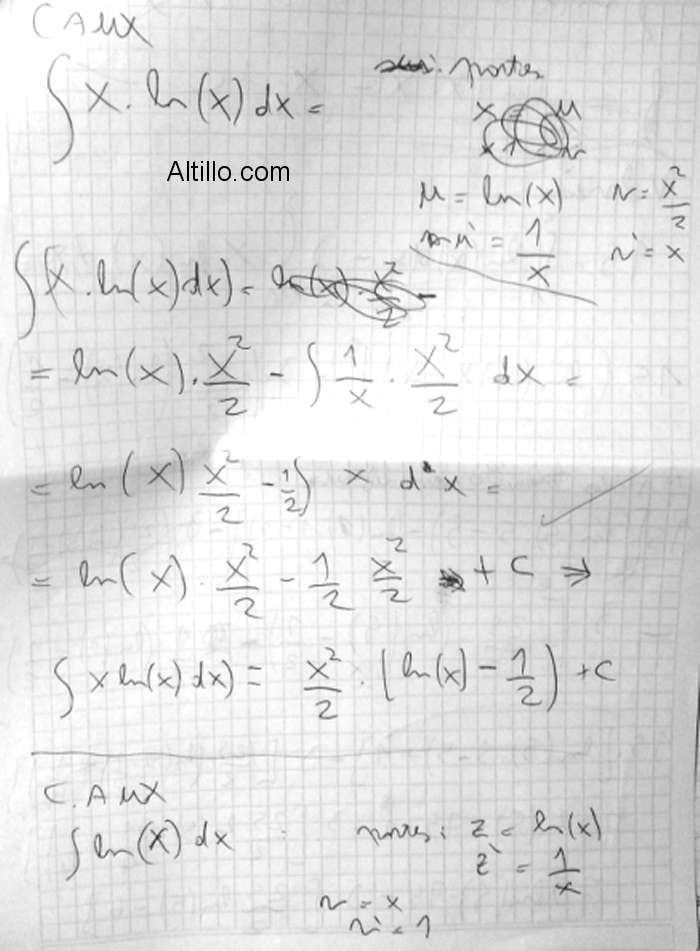 C AUX
∫ x . ln(x) dx =
: partes
Altillo.com
μ = ln(x) v = x²/2
μ' = 1/x v' = x
∫(x . ln(x) dx) =
= ln(x) . x²/2 - ∫ 1/x . x²/2 dx =
= ln(x) x²/2 - 1/2 ∫ x dx =
= ln(x) . x²/2 - 1/2 x²/2 + C ⇒
∫ x ln(x) dx) = x²/2 . (ln(x) - 1/2) + C
C. AUX
∫ ln(x) dx partes: z = ln(x)
z' = 1/x
v = x
v' = 1